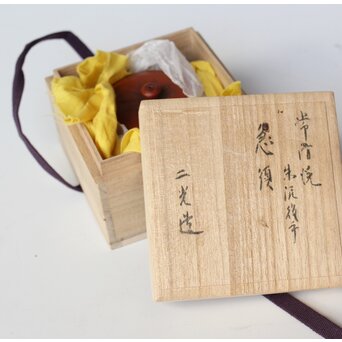 常滑焼
朱泥後手
急須
二光造